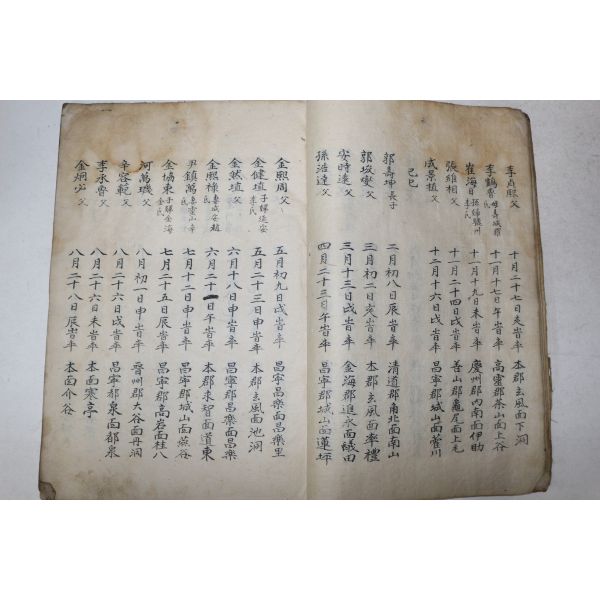 李貞熙父 十月二十七日未峕卒 本郡玄風面下洞
李鶴魯 母壽城羅氏 十一月十七日午峕卒 高靈郡茶山面上谷
崔海日 孫婦驪州李氏 十一月十九日未峕卒 慶州郡內南面伊助
張維相父 十一月二十四日戌峕卒 善山郡龜尾面上毛
成景植父 十二月十六日戌峕卒 昌寧郡城山面
己巳
郭壽坤長子 二月初八日辰峕卒 清道郡角北面南山
郭埈燮父 三月初二日亥峕卒 本郡玄風面率禮
安時遠父 三月十三日戌峕卒 金海郡進永面
孫浩達父 四月二十三日午峕卒 昌寧郡城山面蓮坪
金熙周父 五月初九日戌峕卒 昌寧昌樂面昌樂里
金健埴 子婦延安李氏 五月二十三日申峕卒 本郡玄風面池洞
金然埴父 六月十八日申峕卒 昌寧郡昌樂面昌樂
金熙祿 妻成安趙氏 六月二十一日午峕卒 本郡求智面道東
尹鎮萬 妻靈山辛氏 七月十二日申峕卒 昌寧郡城山面
金協東 子婦金海金氏 七月二十五日辰峕卒 昌寧郡高岩面桂八
河萬璣父 八月初一日申峕卒 晉州郡大谷面丹洞
辛容範父 八月二十六日戌峕卒 昌寧郡都泉面都泉
李承魯父 八月二十六日未峕卒 本面寒亭
金炯 父 八月二十八日辰峕卒 本面介谷